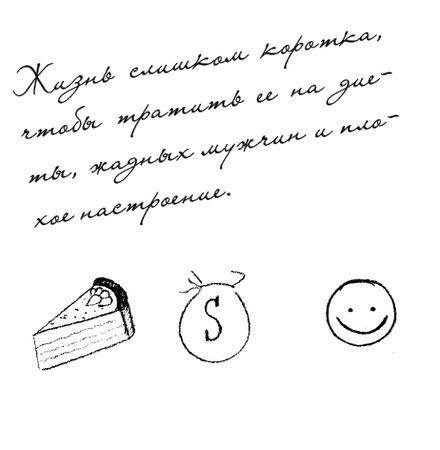 Жизнь слишком коротка,
чтобы тратить ее на дие-
ты, жадных мужчин и пло-
хое настроение.
S